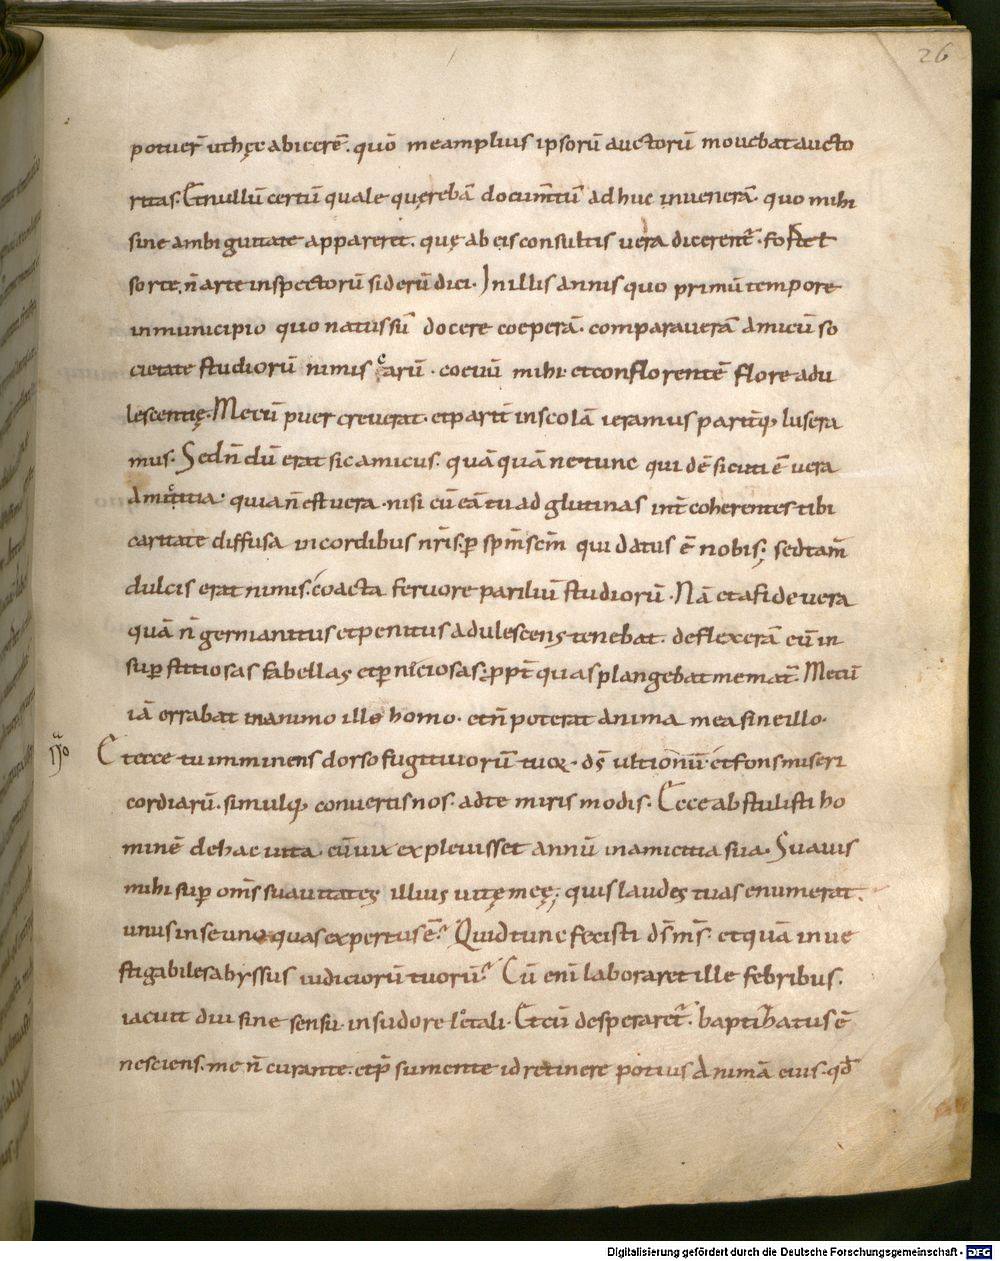 26
potuer̄ ut hęc abicerē. quō me amplius ipsorū auctorū movebat aucto
ritas. Et nullū certū quale quęrebā documtū̄ ad huc inuenerā. quo mihi
sine ambiguitate appareret. quę ab eis consultis uera dicerent̄. forte l̄
sorte. n̄ arte inspectorū siderū dici. In illis annis quo primū tempore
in municipio quo natus sū docere coeperā. comparaverā amicū so
cietate studiorū nimis carū. coeuū mihi et conflorentē flore adu
lescentię. Mecū puer creverat. et parit̄ in scolā ieramus paritq; lusera
mus. Sed n̄dū erat sic amicus. quāquā ne tunc quidē sicuti ē uera
amicitia. quia n̄ est uera. nisi cū eā tu adglutinas int̄ coherentes tibi
caritate diffusa in cordibus nr̄is. p̲ spm̄ scm̄ qui datus ē nobis; sed tam̄
dulcis erat nimis. coacta feruore pariliū studiorū. Nā et a fide uera
quā n̄ germanitus et penitus adulescens tenebat. deflexerā eū in
sup̲stitiosas fabellas et p̲niciosas. ppt̄ quas plangebat me mat̄. Mecū
iā errabat in animo ille homo. et n̄ poterat anima mea sine illo.
Et ecce tu imminens dorso fugitiuorū tuoꝝ. ds̄ ultionū et fons miseri
cordiarū. simulq; convertis nos. ad te miris modis. Ecce abstulisti ho
minē de hac uita. cū uix expleuisset annū in amicitia sua. Suauis
mihi sup̲ om̄s suauitates illius uitę meę; quis laudes tuas enumerat.
unus in se uno quas expertus ē? Quid tunc fecisti ds̄ ms̄. et quā inue
stigabiles abyssus iudiciorū tuorū? Cū enī laboraret ille febribus.
iacuit diu sine sensu. in sudore letali. Et cū desperaret̄. baptizatus ē
nesciens. me n̄ curante. et p̄sumente id retinere potius animā eius. qd̄
Digitalisierung gefördert durch die Deutsche Forschungsgemeinschaft - DFG